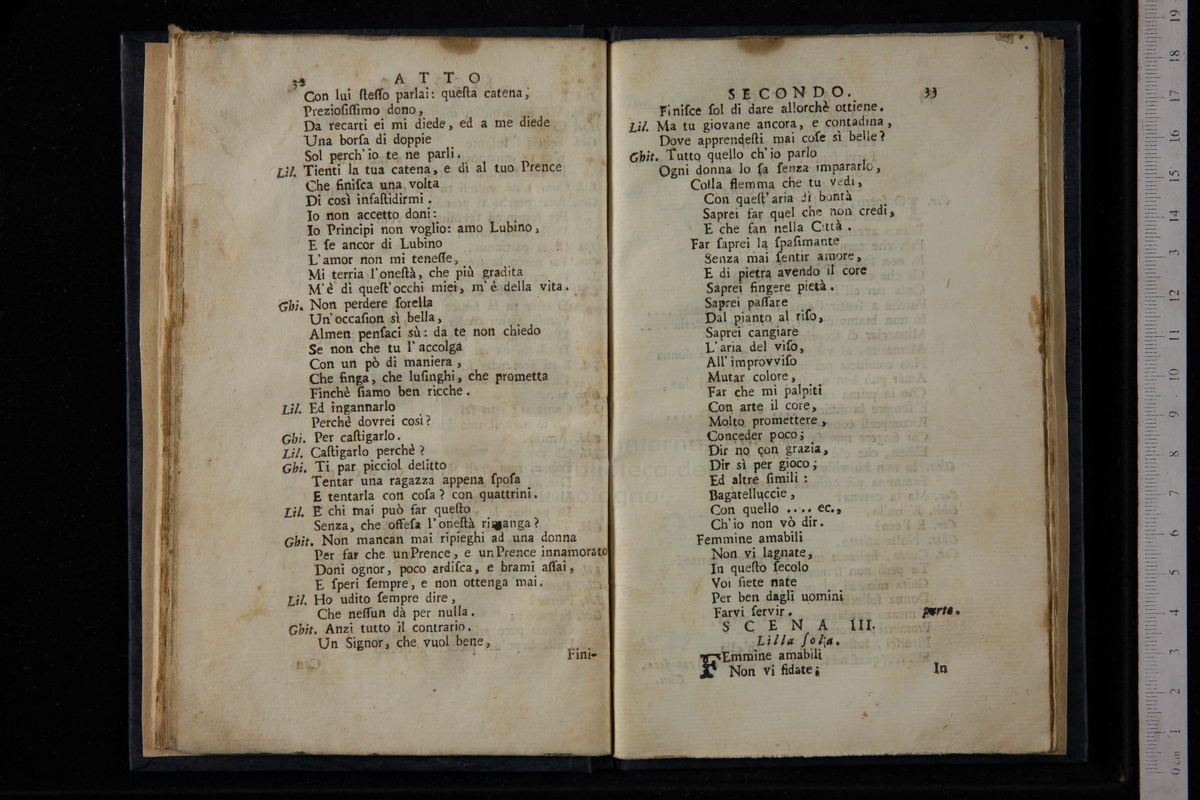 32 ATTO
Con lui ſteſſo parlai: queſta catena,
Prezioſiſſimo dono,
Da recarti ei mi diede, ed a me diede
Una borſa di doppie
Sol perch'io te ne parli.
Lil. Tienti la tua catena, e dì al tuo Prence
Che finiſca una volta
Di così infaſtidirmi.
Io non accetto doni:
Io Principi non voglio: amo Lubino,
E ſe ancor di Lubino
L'amor non mi teneſſe,
Mi terria l'oneſtà, che più gradita
M'è di queſt'occhi miei, m'è della vita.
Ghi. Non perdere ſorella
Un'occaſion sì bella,
Almen penſaci sù: da te non chiedo
Se non che tu l'accolga
Con un pò di maniera,
Che finga, che luſinghi, che prometta
Finchè ſiamo ben ricche.
Lil. Ed ingannarlo
Perchè dovrei così?
Ghi. Per caſtigarlo.
Lil. Caſtigarlo perchè?
Ghi. Ti par picciol delitto
Tentar una ragazza appena ſpoſa
E tentarla con coſa? con quattrini.
Lil. E chi mai può far queſto
Senza, che offeſa l'oneſtà rimanga?
Ghit. Non mancan mai ripieghi ad una donna
Per far che un Prence, e un Prence innamorato
Doni ognor, poco ardiſca, e brami aſſai,
E ſperi ſempre, e non ottenga mai.
Lil. Ho udito ſempre dire,
Che neſſun dà per nulla.
Ghit. Anzi tutto il contrario.
Un Signor, che vuol bene,
Fini-
SECONDO. 33
Finiſce ſol di dare allorchè ottiene.
Lil. Ma tu giovane ancora, e contadina,
Dove apprendeſti mai coſe sì belle?
Ghit. Tutto quello ch'io parlo
Ogni donna lo ſa ſenza impararlo,
Colla flemma che tu vedi,
Con queſt'aria di bontà
Saprei far quel che non credi,
E che fan nella Città.
Far ſaprei la ſpaſimante
Senza mai ſentir amore,
E di pietra avendo il core
Saprei fingere pietà.
Saprei paſſare
Dal pianto al riſo,
Saprei cangiare
L'aria del viſo,
All'improvviſo
Mutar colore,
Far che mi palpiti
Con arte il core,
Molto promettere,
Conceder poco;
Dir no con grazia,
Dir sì per gioco;
Ed altre ſimili:
Bagatelluccie,
Con quello .... ec.,
Ch'io non vò dir.
Femmine amabili
Non vi lagnate,
In queſto ſecolo
Voi ſiete nate
Per ben dagli uomini
Farvi ſervir. parte.
SCENA III.
Lilla ſola.
FEmmine amabili
Non vi fidate;
In